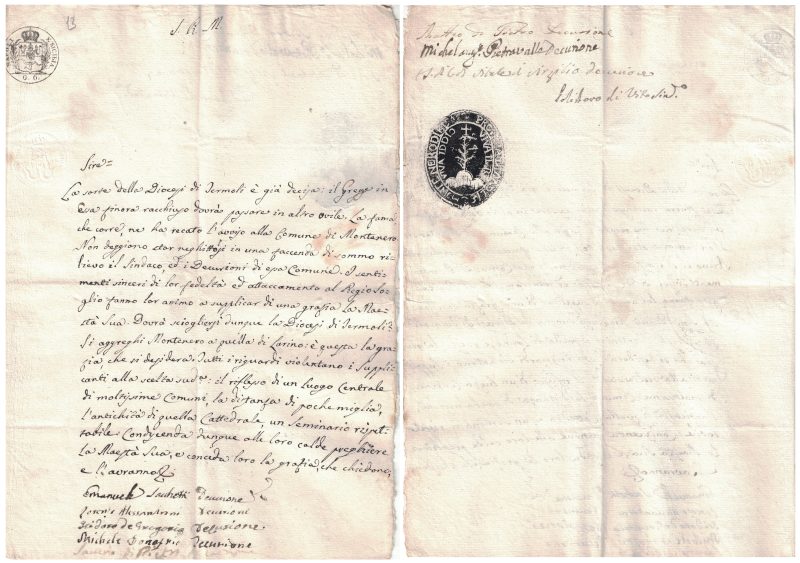 13
S. R. M.
G. 6.
Sire =
La sorte della Diocesi di Termoli è già decisa: il Gregge in
Essa finora racchiuso dovrà passare in altro ovile. La fama
che corre, ne ha recato l'avviso alla Comune di Montenero.
Non deggiono star neghittosi in una faccenda di sommo ri-
lievo il Sindaco, ed i Decurioni di essa Comune. I senti-
menti sinceri di lor fedeltà ed attaccamento al Regio So-
glio fanno lor animo a supplicar di una grazia la Mae-
stà Sua. Dovrà sciogliersi dunque la Diocesi di Termoli?
Si aggreghi Montenero a quella di Larino: è questa la gra-
zia che si desidera. Tutti i riguardi violentano i suppli-
canti alla scelta sud.a: il riflesso di un Luogo Centrale
di moltissime Comuni, la distanza di poche miglia,
l'antichità di quella Cattedrale, un Seminario rispet-
tabile. Condiscenda dunque alle loro calde preghiere
la Maestà Sua, e conceda loro la grazia, che chiedono,
e l'avranno
Emanuele Sacchetti Decurione
Alessandrini Decurione
Isidoro de Gregorio Decurione
Michele Donofrio Decurione
Matteo di Pietro Decurione
Michel Ang.o Pietravalla Decurione
Virgilio decurione
Polidoro di Vito Sind.o